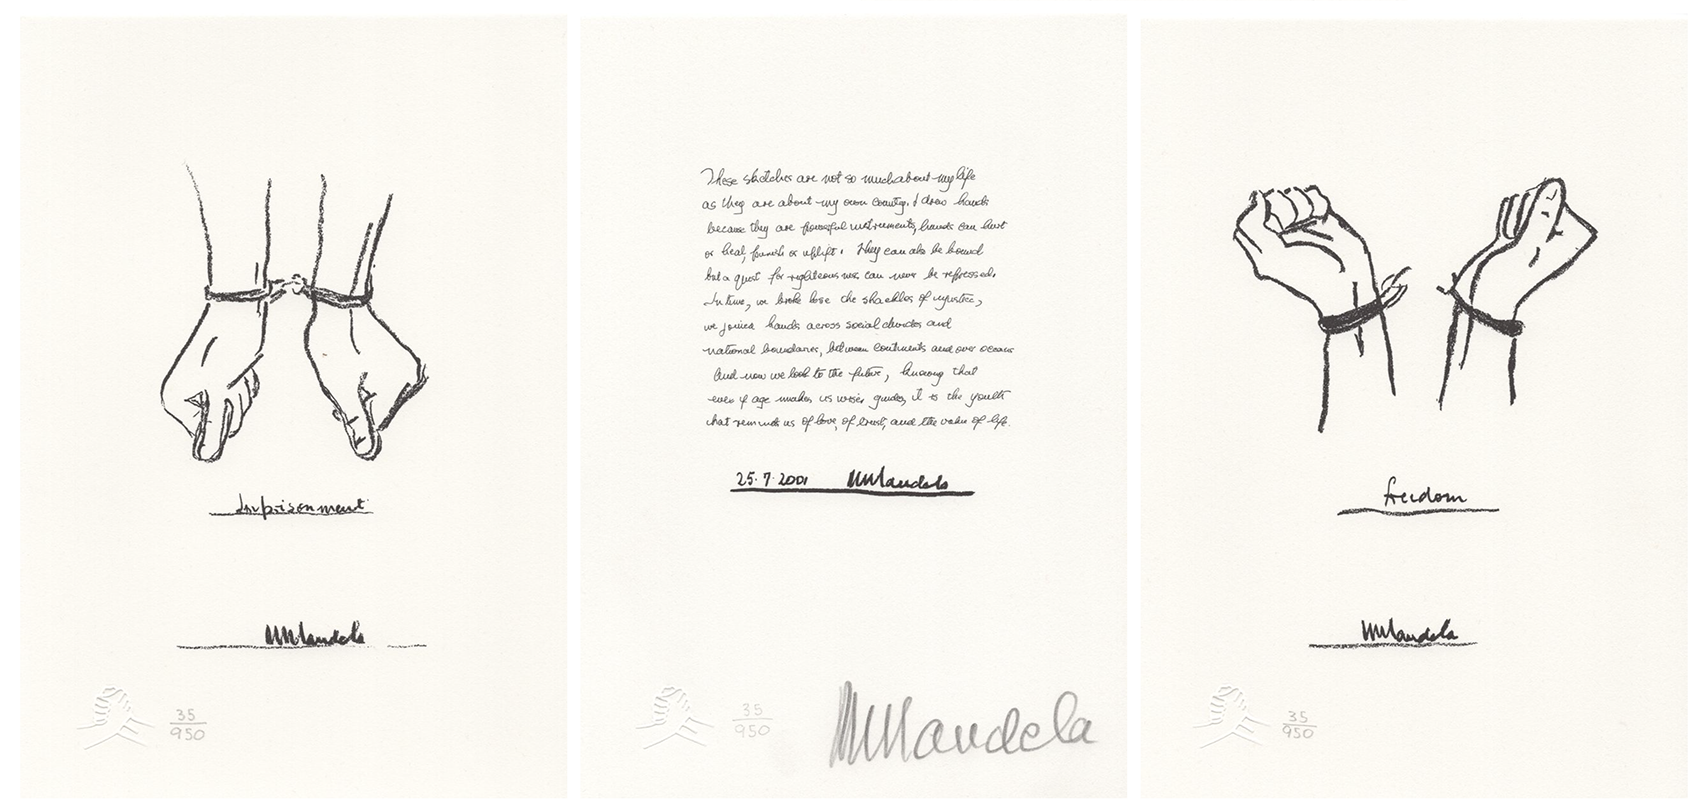 Imprisonment
MMandela
35
950
These sketches are not so much about my life
as they are about my own country. I drew hands
because they are powerful instruments, hands can hurt
or heal, punish or uplift. They can also be bound
but a quest for righteousness can never be repressed.
In time, we broke lose the shackles of injustice,
we joined hands across social divides and
national boundaries, between continents and over oceans
And now we look to the future, knowing that
even if age makes us wiser guides, it is the youth
that reminds us of love, of trust, and the value of life.
25.7.2001 MMandela
35
950
MMandela
freedom
MMandela
35
950